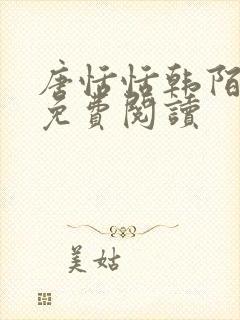 唐恬恬韩陌
免費閱讀
美姑